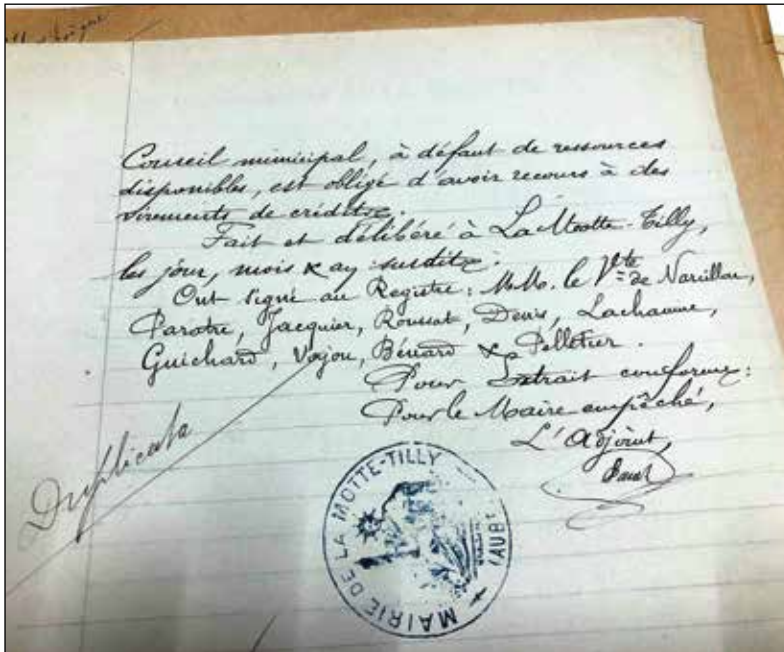 Conseil municipal, à défaut de ressources
disponibles, est obligé d'avoir recours à des
virements de crédits.
Fait et délibéré à La Motte-Tilly,
les jour, mois & an susdits.
Ont signé au Registre: M.M. le Vte de
Jacquier, Roussat, Denis, Lachaume,
Guichard, Vajou, Bénard & Pelletier.
Pour Extrait conforme:
Pour le Maire empêché,
L'Adjoint,
Duplicata
MAIRIE DE LA MOTTE-TILLY
(AUBE)